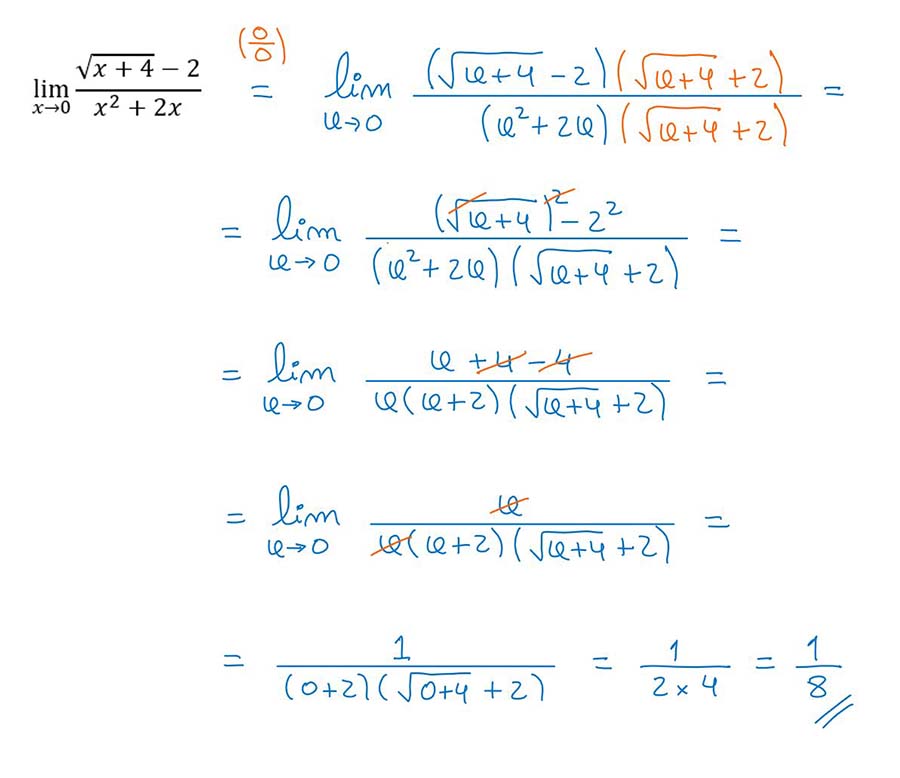 lim x→0 (√(x + 4) − 2)/(x² + 2x) (0/0) = lim x→0 ((√(x+4) − 2)(√(x+4) + 2))/((x² + 2x)(√(x+4) + 2)) =
= lim x→0 ((√(x+4))² − 2²)/((x² + 2x)(√(x+4) + 2)) =
= lim x→0 (x + 4 − 4)/(x(x+2)(√(x+4) + 2)) =
= lim x→0 x/(x(x+2)(√(x+4) + 2)) =
= 1/((0+2)(√(0+4) + 2)) = 1/(2 × 4) = 1/8